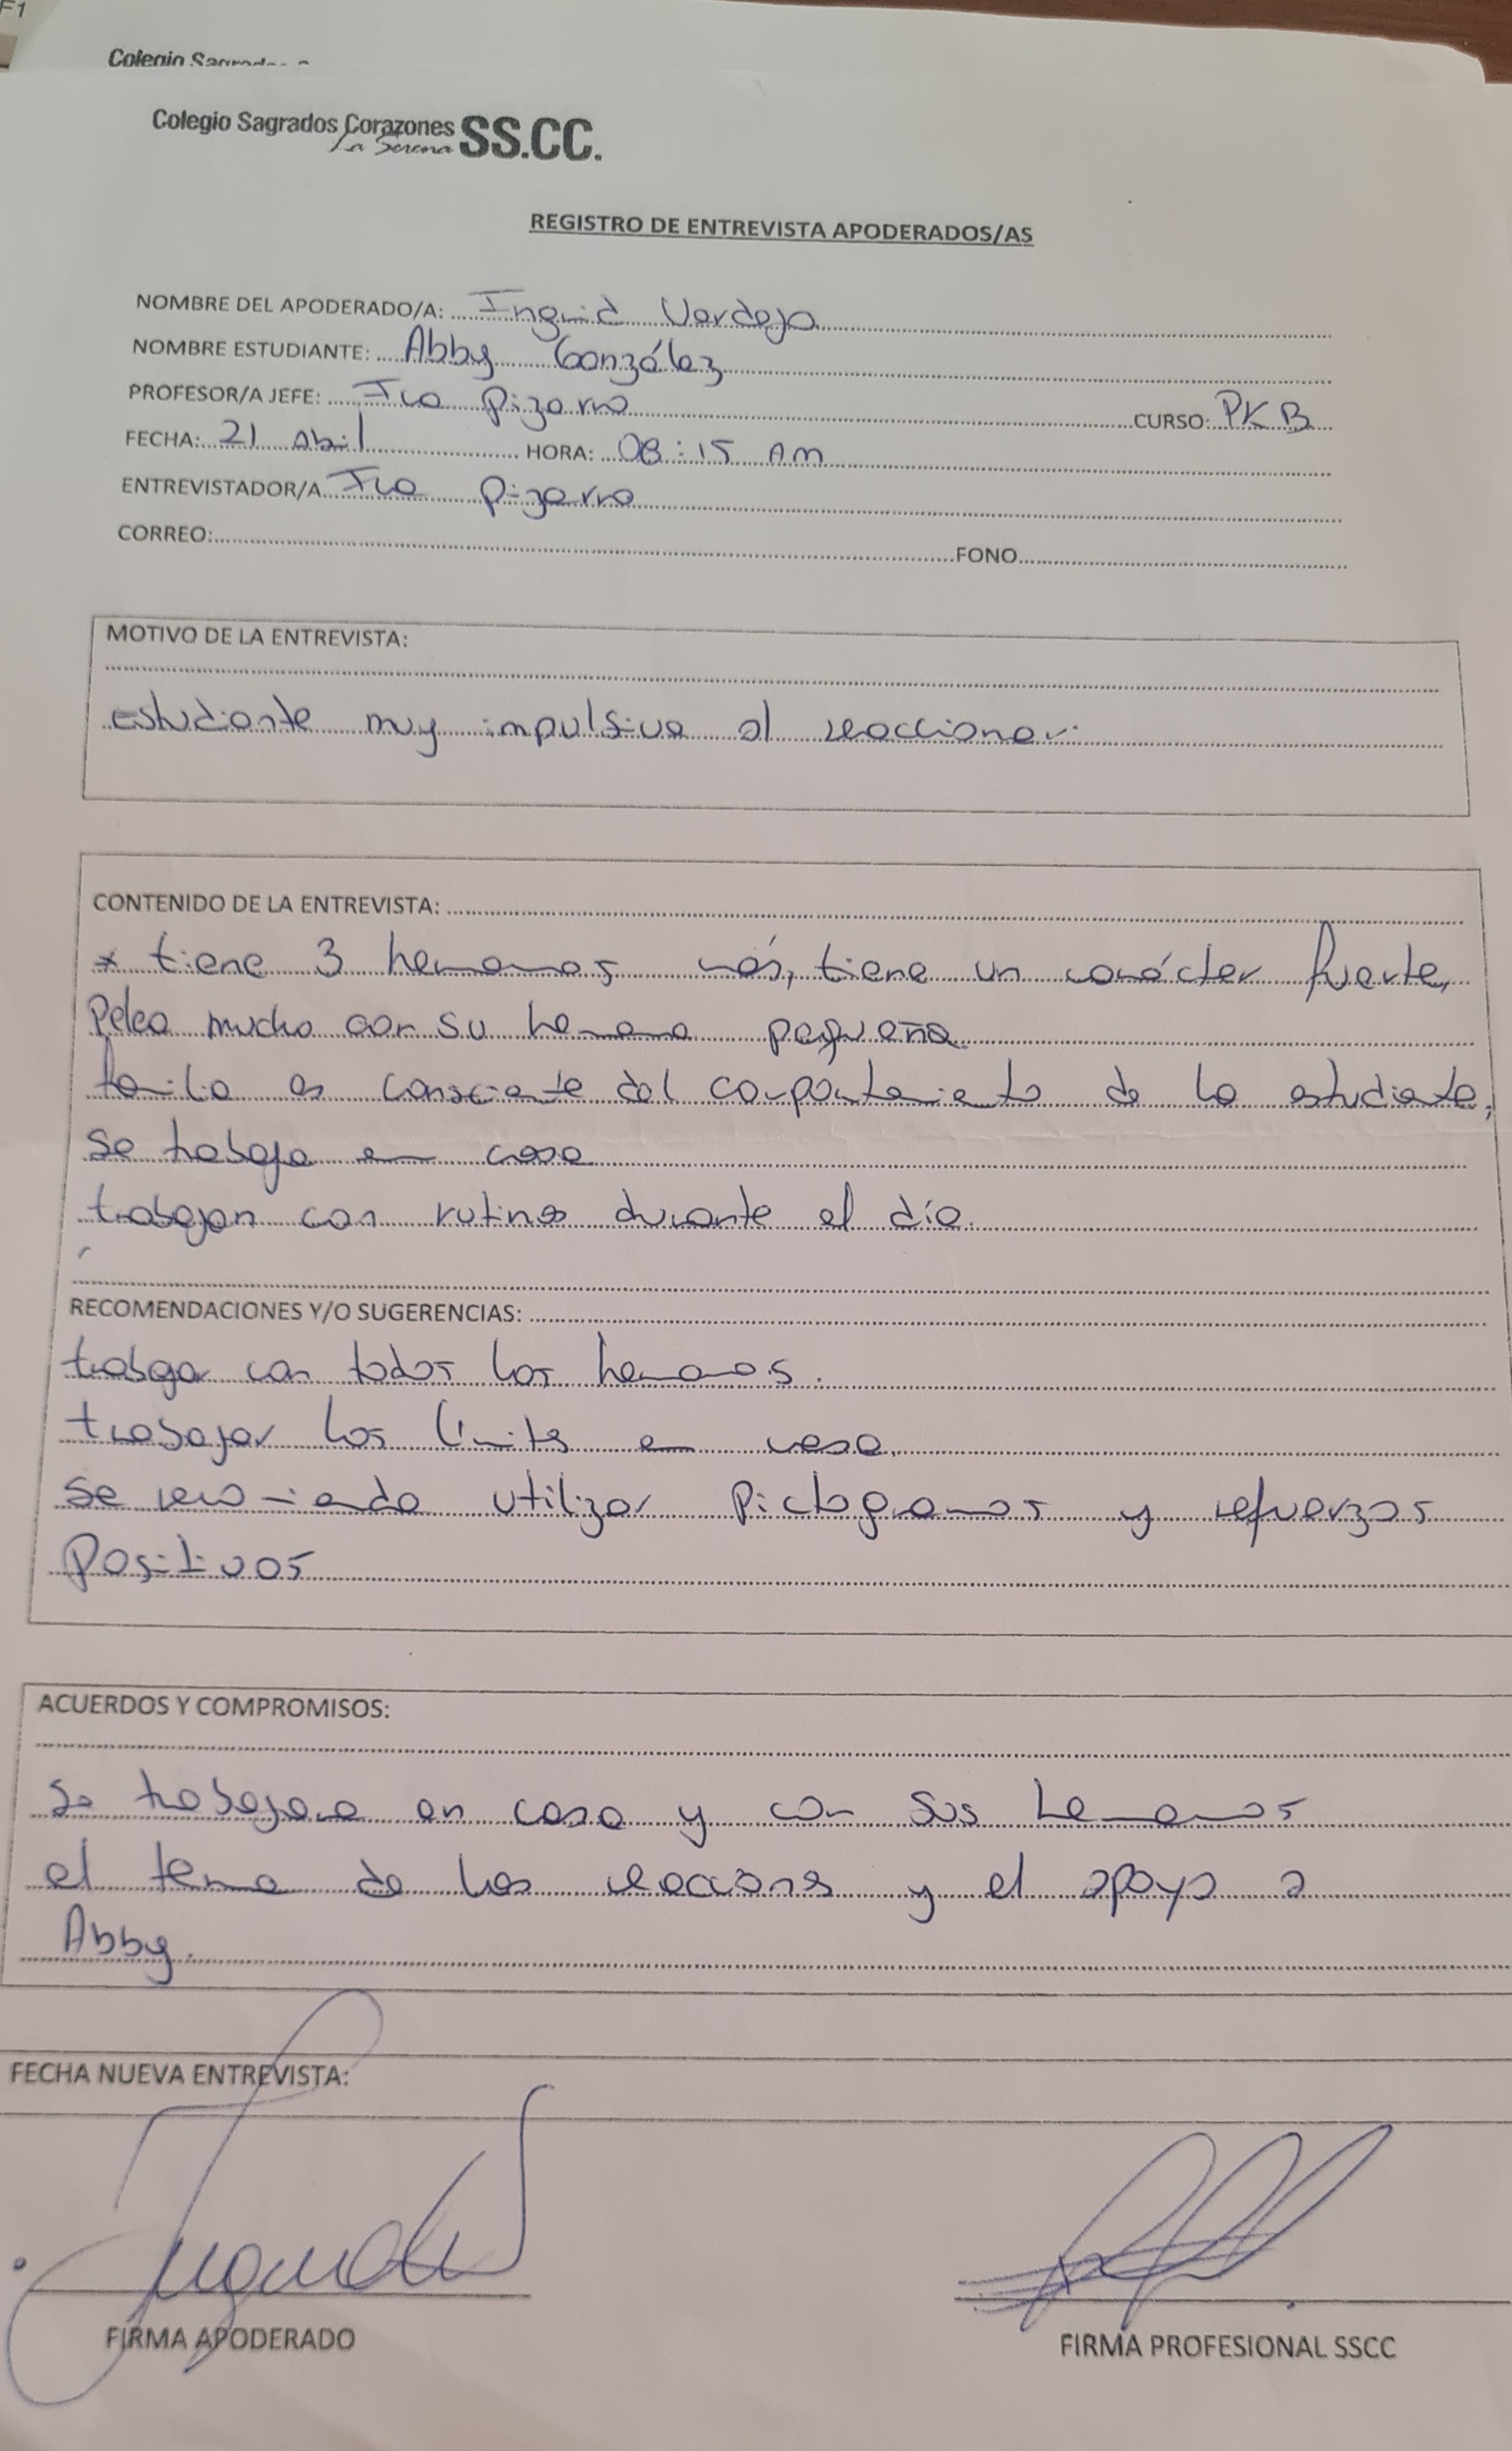 F1
Colegio Sagrados C
Colegio Sagrados Corazones SS.CC.
La Serena
REGISTRO DE ENTREVISTA APODERADOS/AS
NOMBRE DEL APODERADO/A: Ingrid Verdejo
NOMBRE ESTUDIANTE: Abby González
PROFESOR/A JEFE: Pizarro CURSO: PKB
FECHA: 21 Abril HORA: 08:15 AM
ENTREVISTADOR/A Pizarro
CORREO: FONO
MOTIVO DE LA ENTREVISTA:
estudiante muy impulsiva al reaccionar.
CONTENIDO DE LA ENTREVISTA:
* tiene 3 hermanos más, tiene un carácter fuerte,
Pelea mucho con su hermana pequeña
familia es consciente del comportamiento de la estudiante,
se trabaja en casa
trabajan con rutinas durante el día.
RECOMENDACIONES Y/O SUGERENCIAS:
trabajar con todos los hermanos.
trabajar los límites en casa.
se recomienda utilizar pictogramas y refuerzos
Positivos
ACUERDOS Y COMPROMISOS:
se trabajara en casa y con sus hermanos
el tema de las reacciones y el apoyo a
Abby.
FECHA NUEVA ENTREVISTA:
FIRMA APODERADO FIRMA PROFESIONAL SSCC